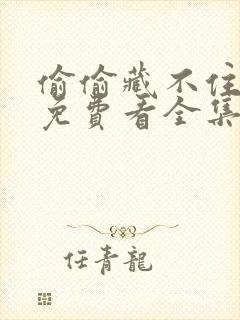 偷偷藏不住
免費看全集
任青龍